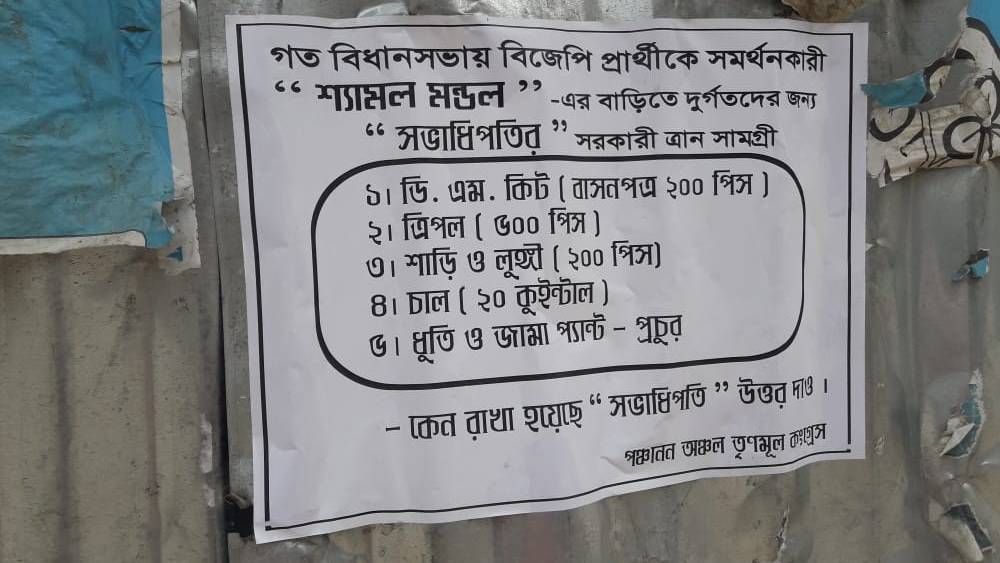 গত বিধানসভায় বিজেপি প্রার্থীকে সমর্থনকারী
“ শ্যামল মন্ডল ” -এর বাড়িতে দুর্গতদের জন্য
“ সভাধিপতির ” সরকারী ত্রান সামগ্রী
১। ডি. এম. কিট ( বাসনপত্র ২০০ পিস )
২। ত্রিপল ( ৫০০ পিস )
৩। শাড়ি ও লুঙ্গী ( ২০০ পিস)
৪। চাল ( ২০ কুইন্টাল )
৫। ধূতি ও জামা প্যান্ট – প্রচুর
– কেন রাখা হয়েছে “ সভাধিপতি ” উত্তর দাও ।
পঞ্চানন অঞ্চল তৃণমূল কংগ্রেস